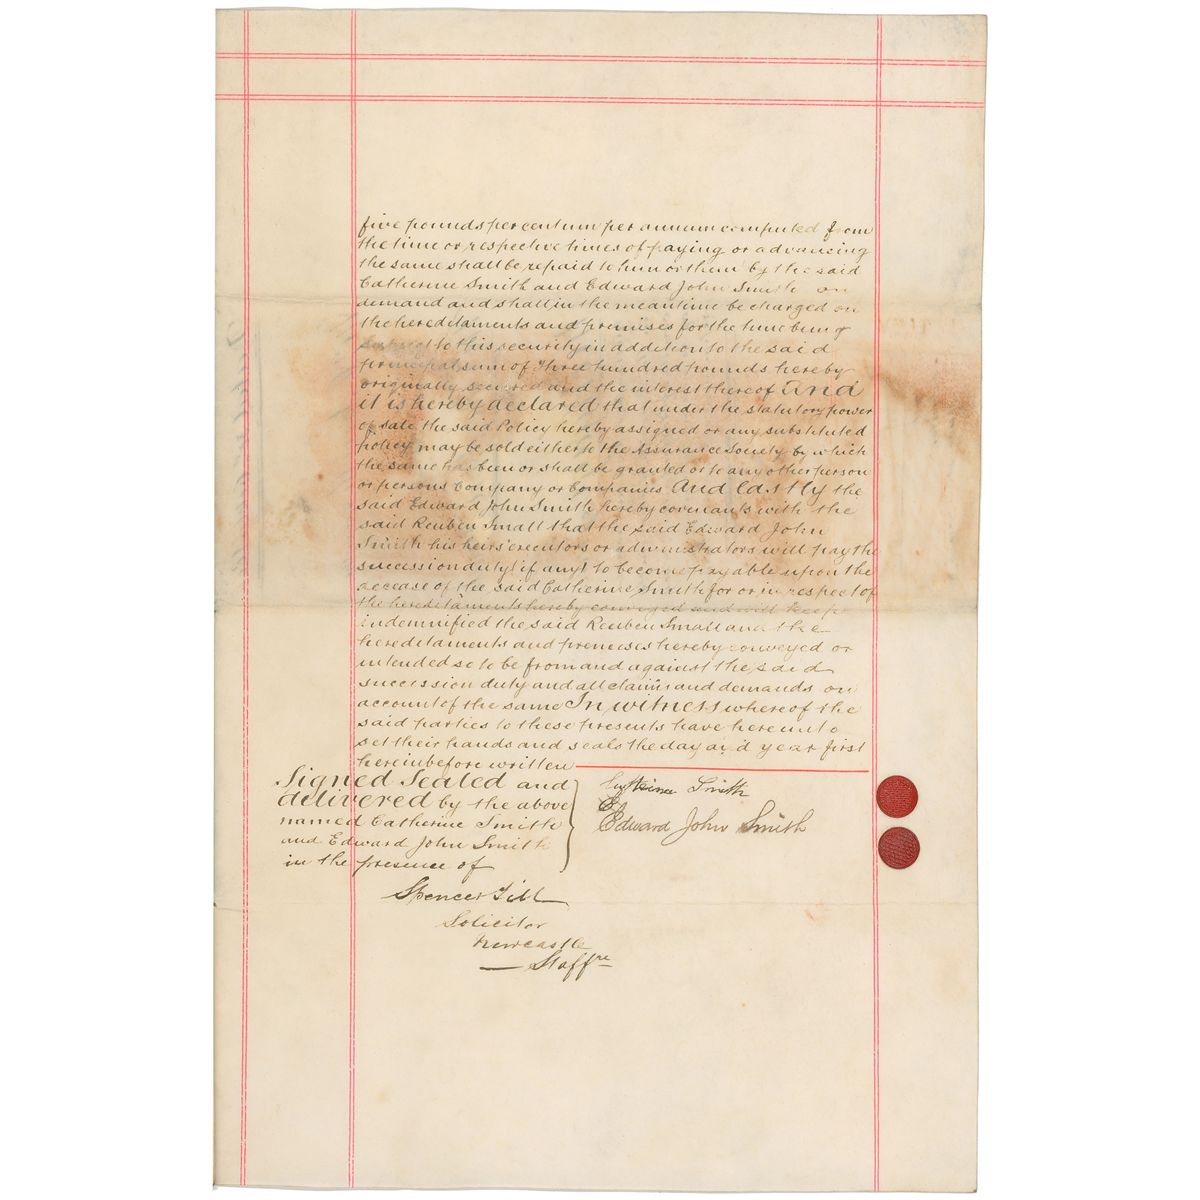 five pounds per centum per annum computed from
the time or respective times of paying or advancing
the same shall be repaid to him or them by the said
Catherine Smith and Edward John Smith on
demand and shall in the meantime be charged on
the hereditaments and premises for the time being
subject to this security in addition to the said
principal sum of Three hundred pounds hereby
originally secured and the interest thereof And
it is hereby declared that under the statutory power
of sale the said Policy hereby assigned or any substituted
policy may be sold either to the Assurance Society by which
the same has been or shall be granted or to any other person
or persons Company or Companies And Lastly the
said Edward John Smith hereby covenants with the
said Reuben Small that the said Edward John
Smith his heirs executors or administrators will pay the
succession duty (if any) to become payable upon the
decease of the said Catherine Smith for or in respect of
the hereditaments hereby conveyed and will keep
indemnified the said Reuben Small and the
hereditaments and premises hereby conveyed or
intended so to be from and against the said
succession duty and all claims and demands on
account of the same In witness whereof the
said parties to these presents have hereunto
set their hands and seals the day and year first
hereinbefore written
Signed Sealed and
delivered by the above
named Catherine Smith
and Edward John Smith
in the presence of
Smith
Edward John Smith
Spencer Till
Solicitor
Newcastle
Staffre